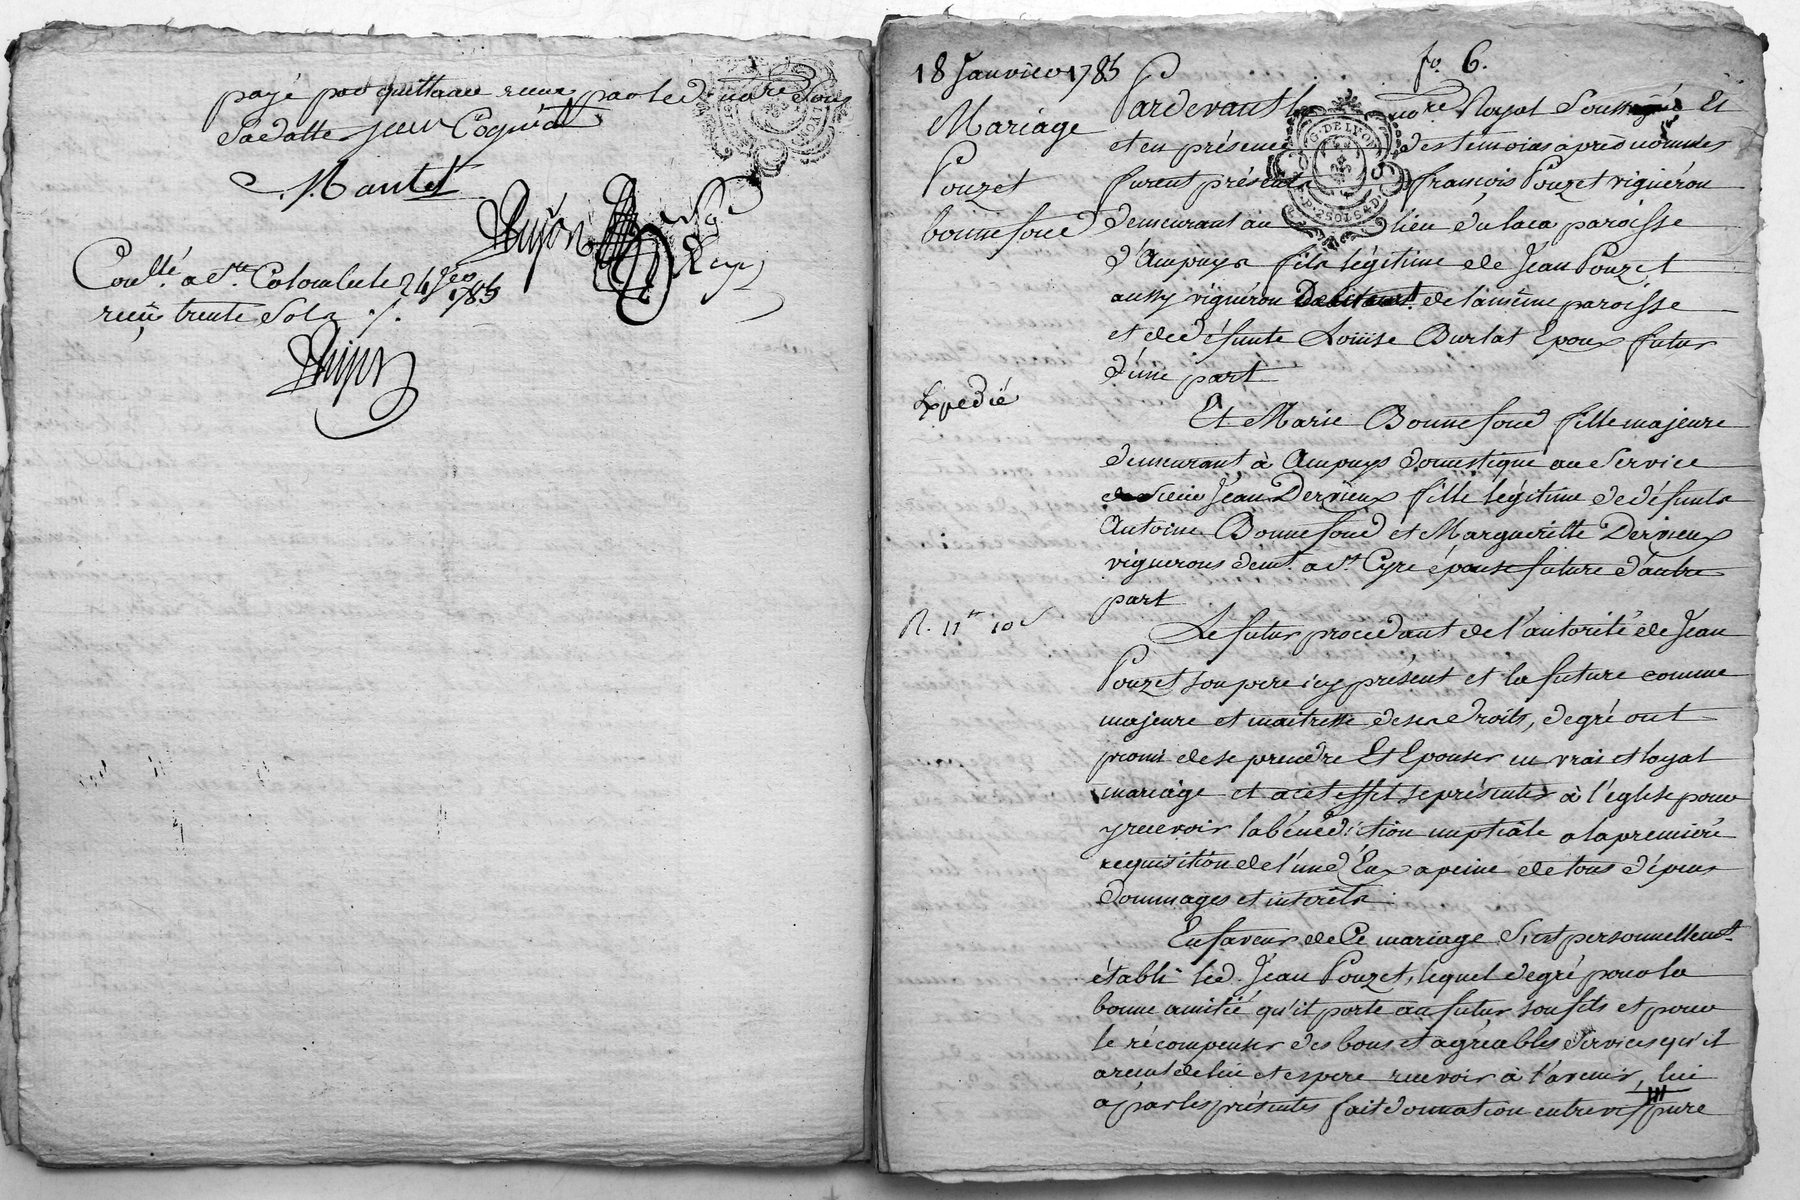 payé par quittance reçue par led. no.re sous
sa datte jean Cognéat
Nantet
Dujon
Con.llé a S.te Colombe le 24 Jer. 1785
reçu trente sols ./.
Dujon
18 Janvier 1785
Mariage
Pouzet
bonnefond
Expedié
R. 11tt 10s
fo. 6.
Pardevant no.re Royal soussigné Et
et en présence des temoins après només
furent présents françois Pouzet vignéron
demeurant au lieu dulaca paroisse
d'Ampuys fils légitime de Jean Pouzet
aussy vignéron de la même paroisse
et de défunte Loüise Burlat Epoux futur
d'une part
Et Marie Bonnefond fille majeure
demeurant à Ampuys domestique au service
de sieur Jean Dervieux fille légitime de défunts
Antoine Bonnefond et Margueritte Dervieux
vignerons demt. a St. Cyre épouse future d'autre
part
Le futur procedant de l'autorité de Jean
Pouzet son pere icy présent et la future comme
majeure et maitresse de ses droits, degré ont
promi de se prendre Et Epouser en vrai et loyal
mariage et a cet effet se présenter à l'église pour
y recevoir la bénédiction nuptiale a la premiére
requisition de l'un d'Eux a peine de tous dépens
dommages et intérêts.
En faveur de Ce mariage s'est personnellemt.
établi led. Jean Pouzet, lequel degré pour la
bonne amitié qu'il porte au futur son fils et pour
le récompenser des bons et agréables services qu'il
a recut de lui et espere recevoir à l'avenir, lui
a par les présentes fait donnation entre vifs pure
G. DE LYON
P. 2 SOLS 4 D.